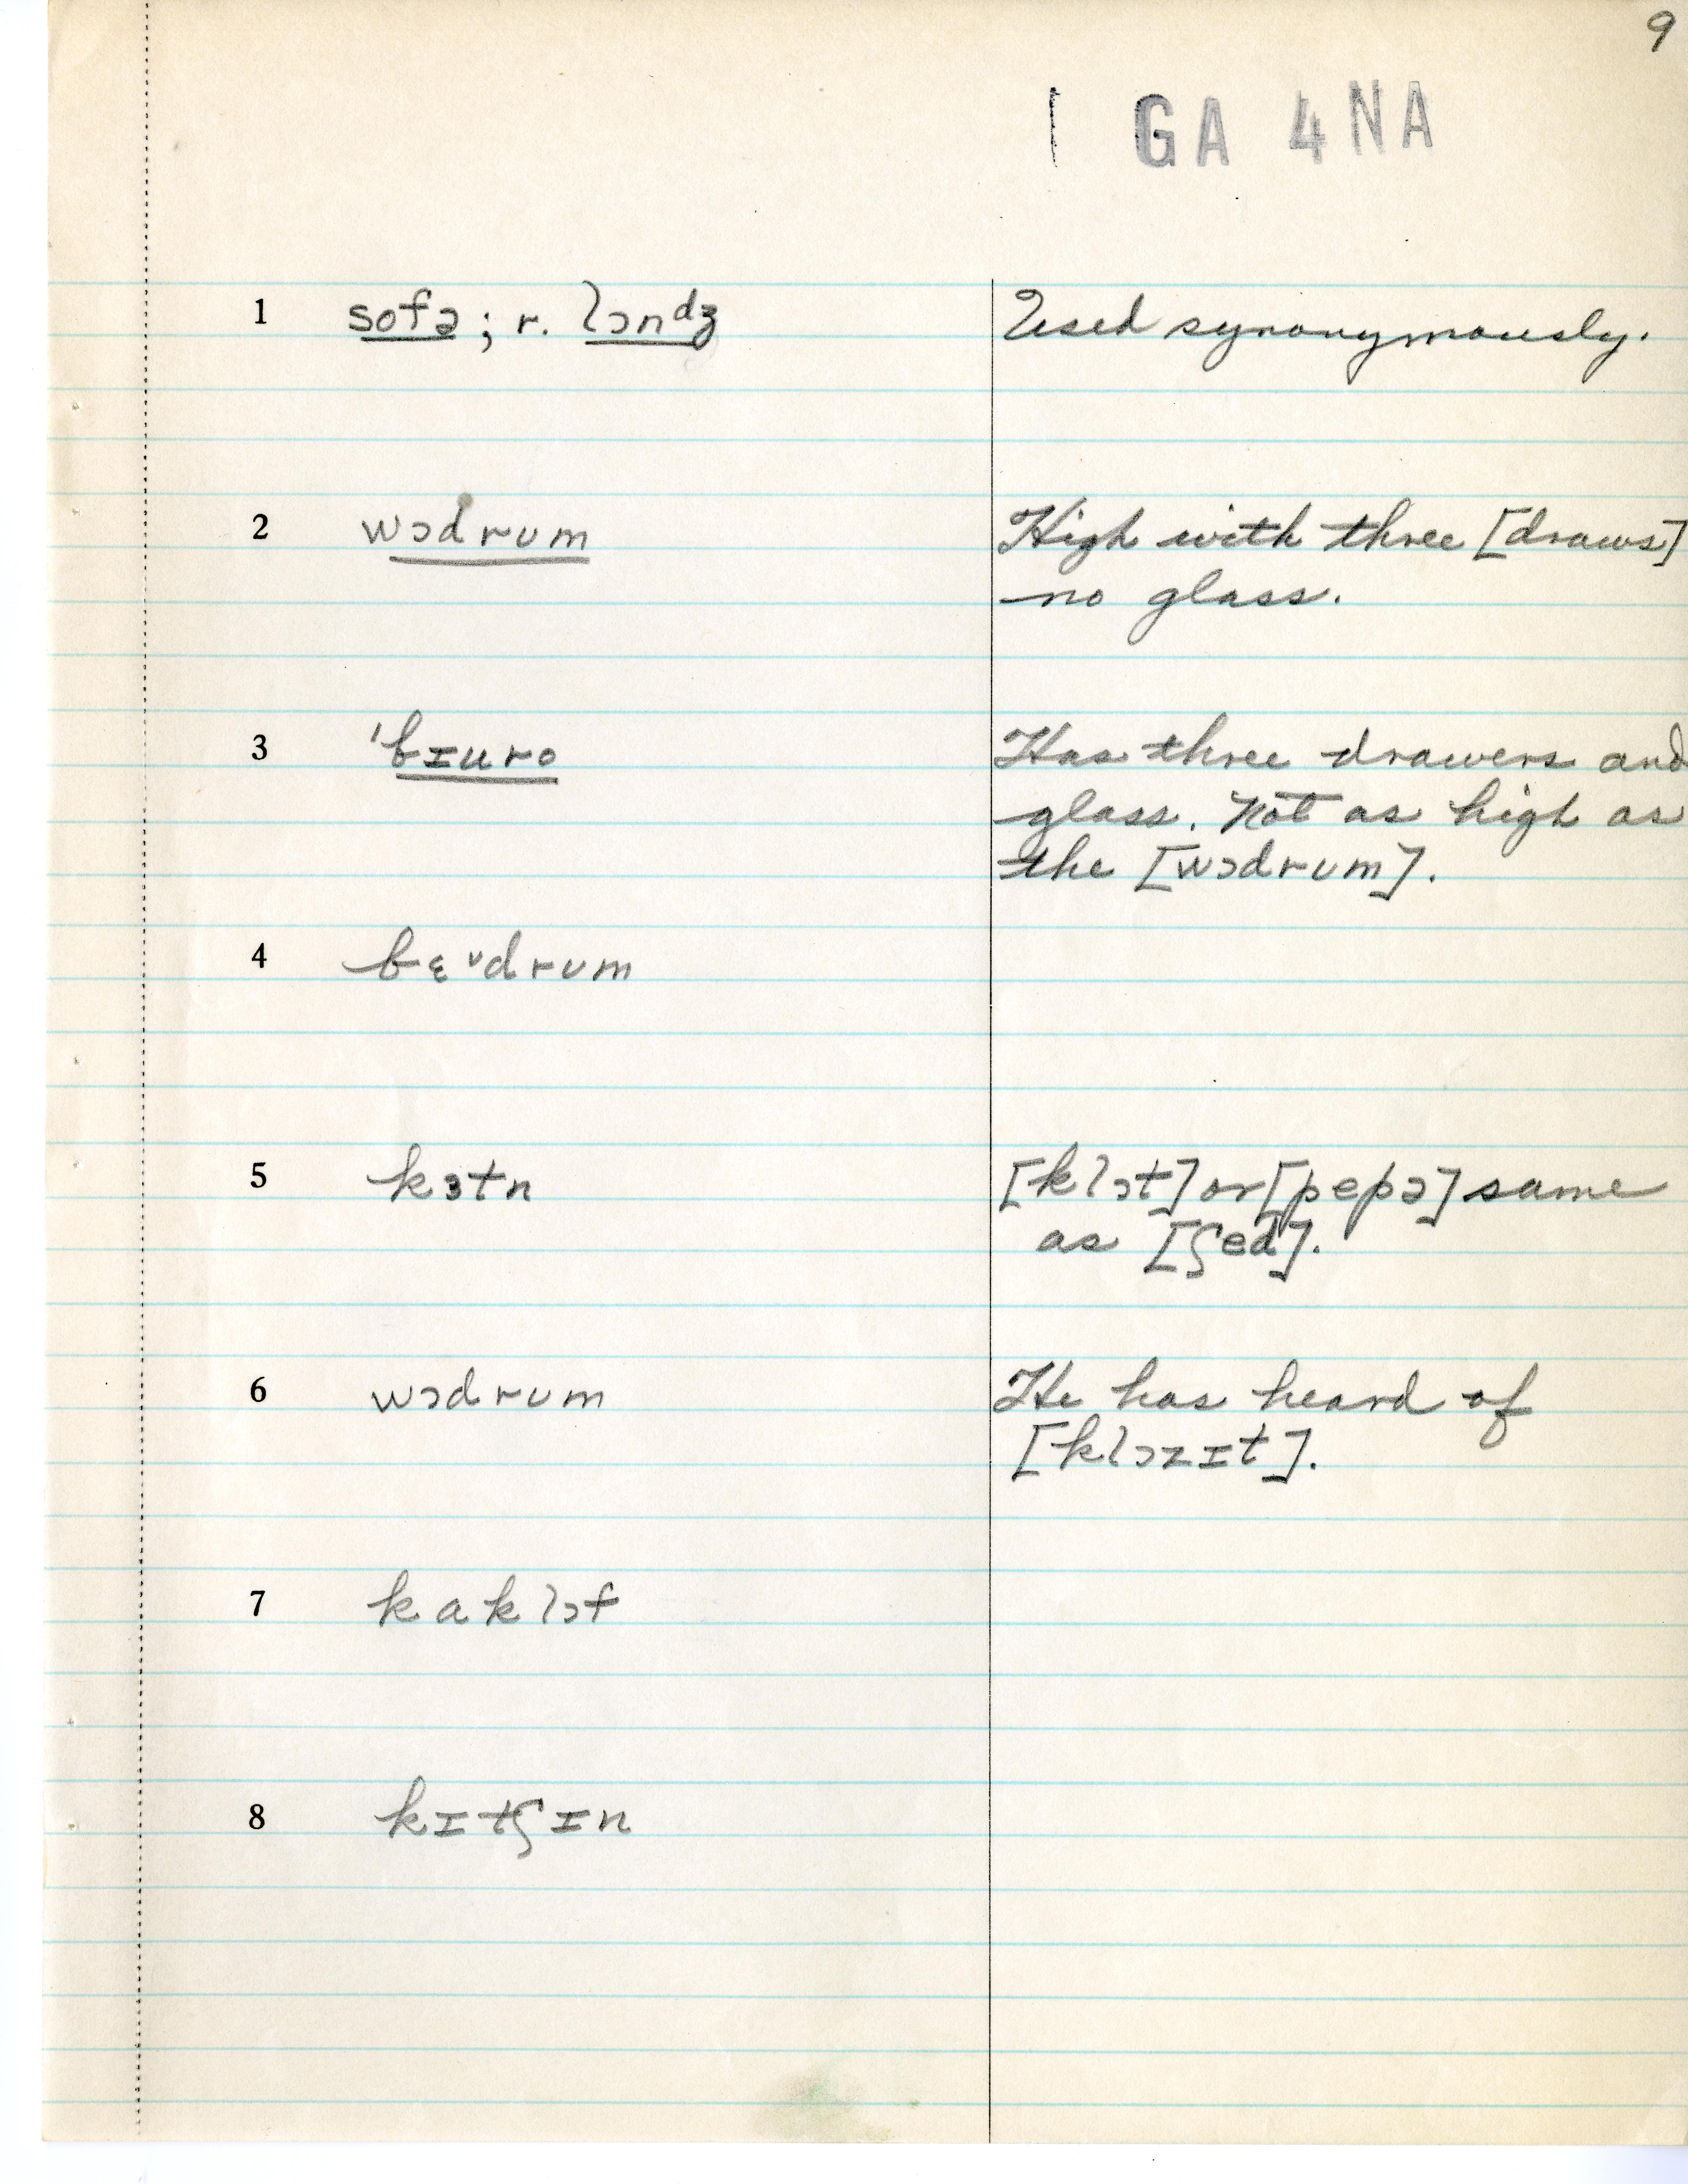 9
1 GA 4 NA
1 sofə ; r. lɔnᵈʒ Used synonymously.
2 wɔdrʊm High with three [draws]
no glass.
3 ˈbɪuro Has three drawers and
glass. Not as high as
the [wɔdrʊm].
4 bɛᵛdrʊm
5 kɜtn [klɔt] or [pepə] same
as [ʃed].
6 wɔdrʊm He has heard of
[klɔzɪt].
7 kaklɔf
8 kɪtʃɪn